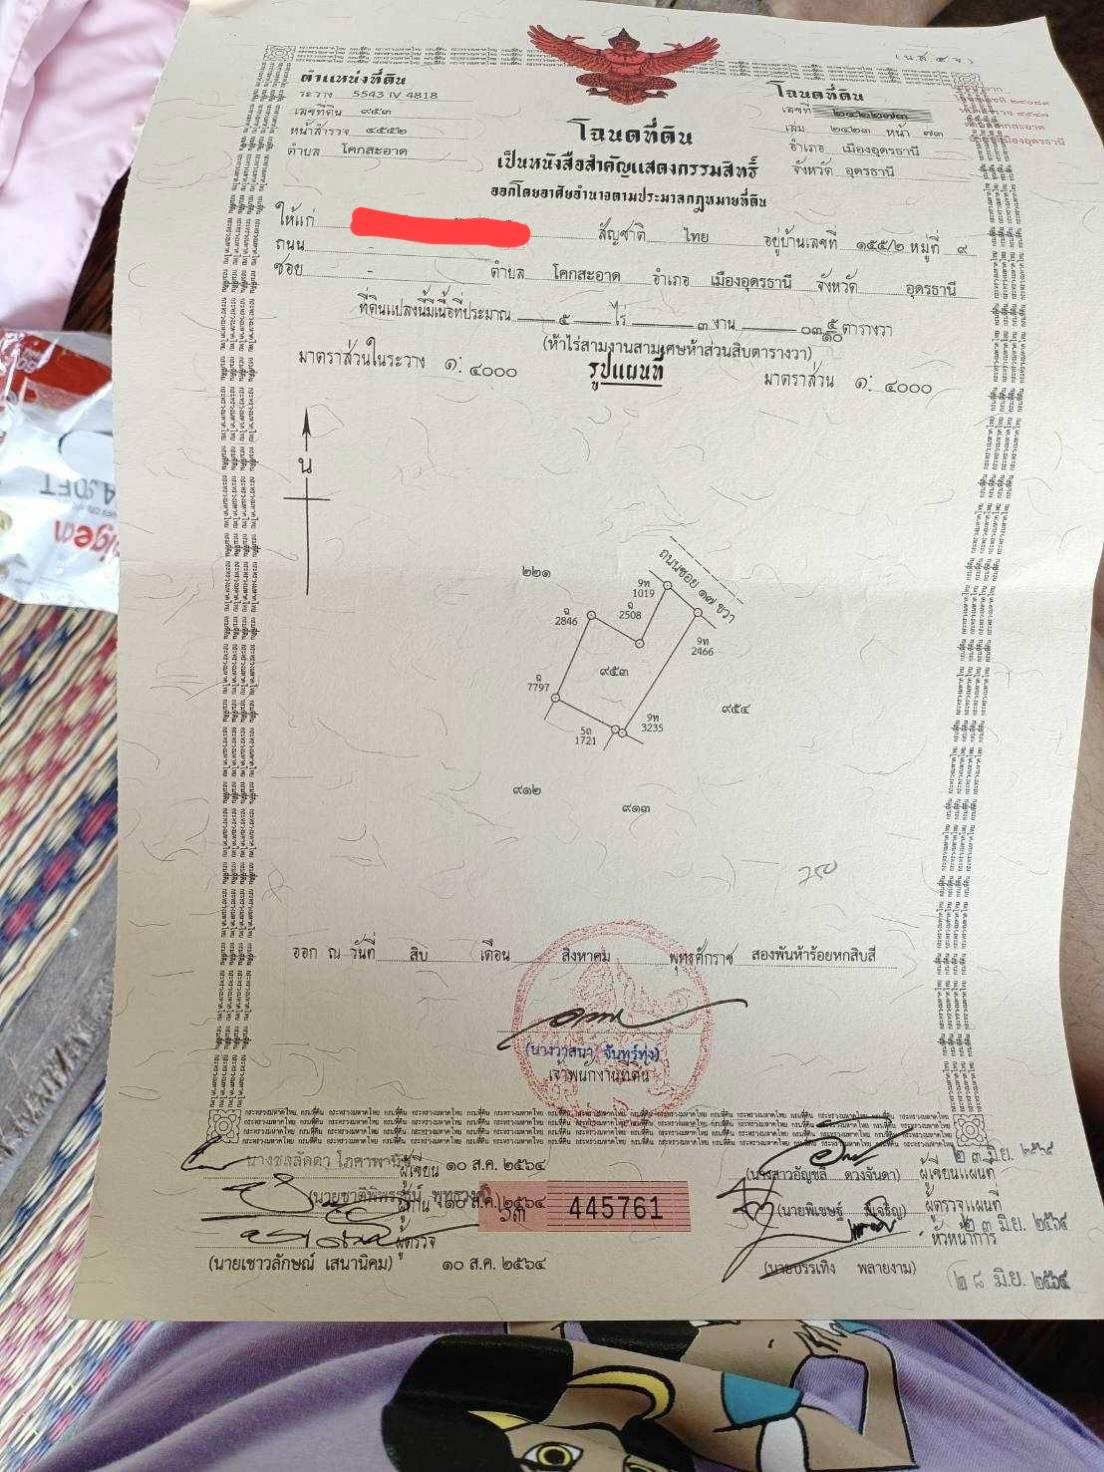 (น.ส. ๔ จ)
ตำแหน่งที่ดิน
ระวาง 5543 IV 4818
เลขที่ดิน ๙๕๓
หน้าสำรวจ ๔๕๕๒
ตำบล โคกสะอาด
โฉนดที่ดิน
เลขที่
เล่ม ๒๔๒๓ หน้า ๗๓
อำเภอ เมืองอุดรธานี
จังหวัด อุดรธานี
โฉนดที่ดิน
เป็นหนังสือสำคัญแสดงกรรมสิทธิ์
ออกโดยอาศัยอำนาจตามประมวลกฎหมายที่ดิน
ให้แก่ สัญชาติ ไทย อยู่บ้านเลขที่ ๑๕๕/๒ หมู่ที่ ๙
ถนน -
ซอย - ตำบล โคกสะอาด อำเภอ เมืองอุดรธานี จังหวัด อุดรธานี
ที่ดินแปลงนี้มีเนื้อที่ประมาณ ๕ ไร่ ๓ งาน ๐๓ ๕/๑๐ ตารางวา
(ห้าไร่สามงานสามเศษห้าส่วนสิบตารางวา)
มาตราส่วนในระวาง ๑: ๔๐๐๐
รูปแผนที่
มาตราส่วน ๑: ๔๐๐๐
น
ถนนซอย ๑๗ ขวา
๒๒๑
9ท
1019
ฉ
2846
ฉ
2508
9ท
2466
๙๕๓
ฉ
7797
๙๕๔
9ท
3235
5ถ
1721
๙๑๒
๙๑๓
750
ออก ณ วันที่ สิบ เดือน สิงหาคม พุทธศักราช สองพันห้าร้อยหกสิบสี่
(นางวาสนา จันทร์ทุ่ง)
เจ้าพนักงานที่ดิน
ผู้เขียน ๑๐ ส.ค. ๒๕๖๔
๑๐ ส.ค. ๒๕๖๔
ผู้ตรวจ
(นายเชาวลักษณ์ เสนานิคม) ๑๐ ส.ค. ๒๕๖๔
445761
(นางสาวอัญชลี ดวงจันดา) ผู้เขียนแผนที่
๒๓ มิ.ย. ๒๕๖๔
ผู้ตรวจแผนที่
๒๓ มิ.ย. ๒๕๖๔
หัวหน้าการ
(นายบรรเทิง พลายงาม)
๒๘ มิ.ย. ๒๕๖๔